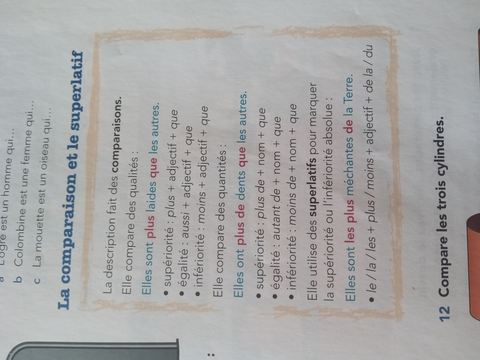 a L'ogre est un homme qui...
b Colombine est une femme qui...
c La mouette est un oiseau qui...
La comparaison et le superlatif
La description fait des comparaisons.
Elle compare des qualités :
Elles sont plus laides que les autres.
• supériorité : plus + adjectif + que
• égalité : aussi + adjectif + que
• infériorité : moins + adjectif + que
Elle compare des quantités :
Elles ont plus de dents que les autres.
• supériorité : plus de + nom + que
• égalité : autant de + nom + que
• infériorité : moins de + nom + que
Elle utilise des superlatifs pour marquer
la supériorité ou l'infériorité absolue :
Elles sont les plus méchantes de la Terre.
• le / la / les + plus / moins + adjectif + de la / du
12 Compare les trois cylindres.